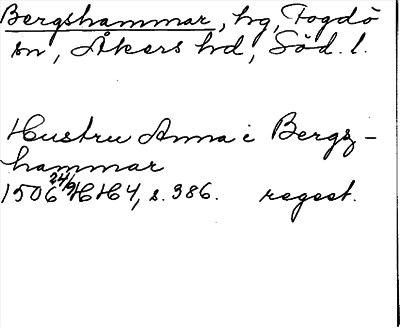 Bergshammar, hg, Fogdö
sn, Åkers hd, Söd. l.
Hustru Anna i Bergz-
hammar
1506 24/9 HH 4, s. 386. regest.